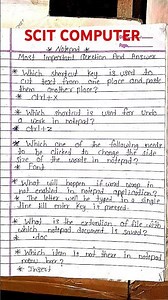 SCIT COMPUTER
Page
* Notepad *
Most Important Question And Answer
* Which shortcut key is used to
cut text from one place and paste
them another place?
* ctrl+x
* Which shortcut is used for undo
a work in notepad?
* ctrl+z
* Which one of the following menu
to be clicked to change the side
size of the words in notepad?
* Font
* What will happen if word wrap is
not enabled in notepad application?
* The letter will be typed in a single
line till enter key is pressed.
* What is the extention of file with
which notepad document is saved?
* .doc
* Which item is not there in notepad
menu bar?
* Insert